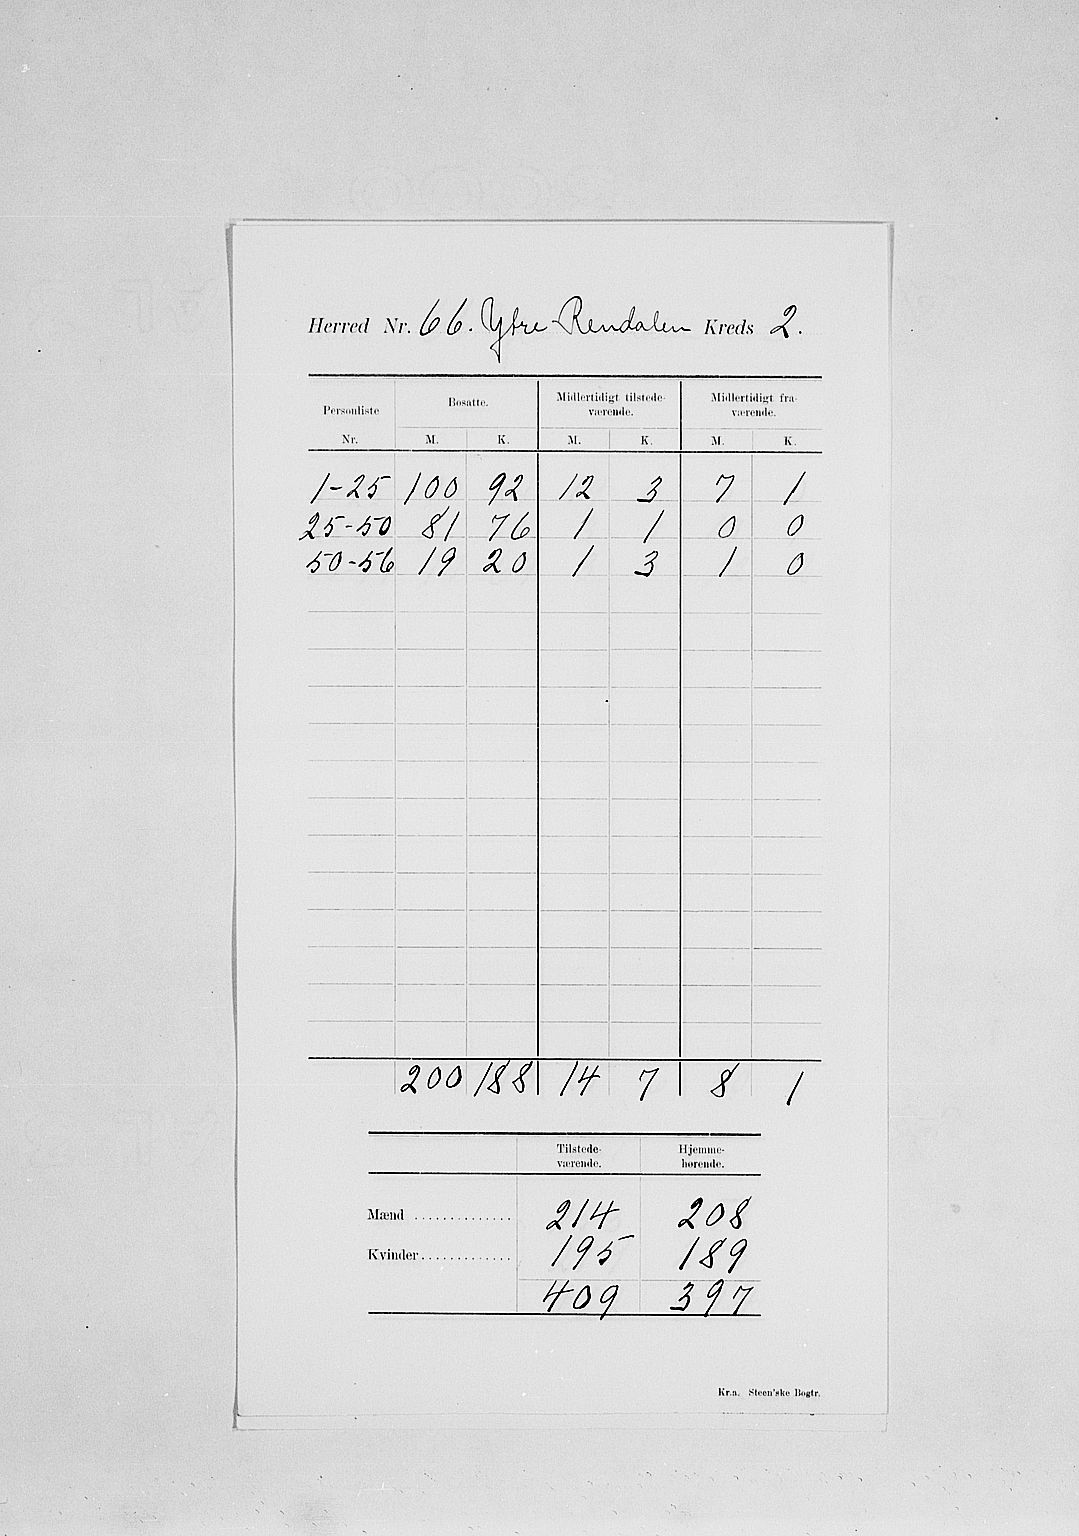 Herred Nr. 66. Ytre Rendalen Kreds 2.
Personliste Nr. Bosatte. Midlertidigt tilstede-værende. Midlertidigt fra-værende.
M. K. M. K. M. K.
1-25 100 92 12 3 7 1
25-50 81 76 1 1 0 0
50-56 19 20 1 3 1 0
200 188 14 7 8 1
Tilstede-værende. Hjemme-hørende.
Mænd .............. 214 208
Kvinder ............. 195 189
409 397
Kr.a. Steen'ske Bogtr.